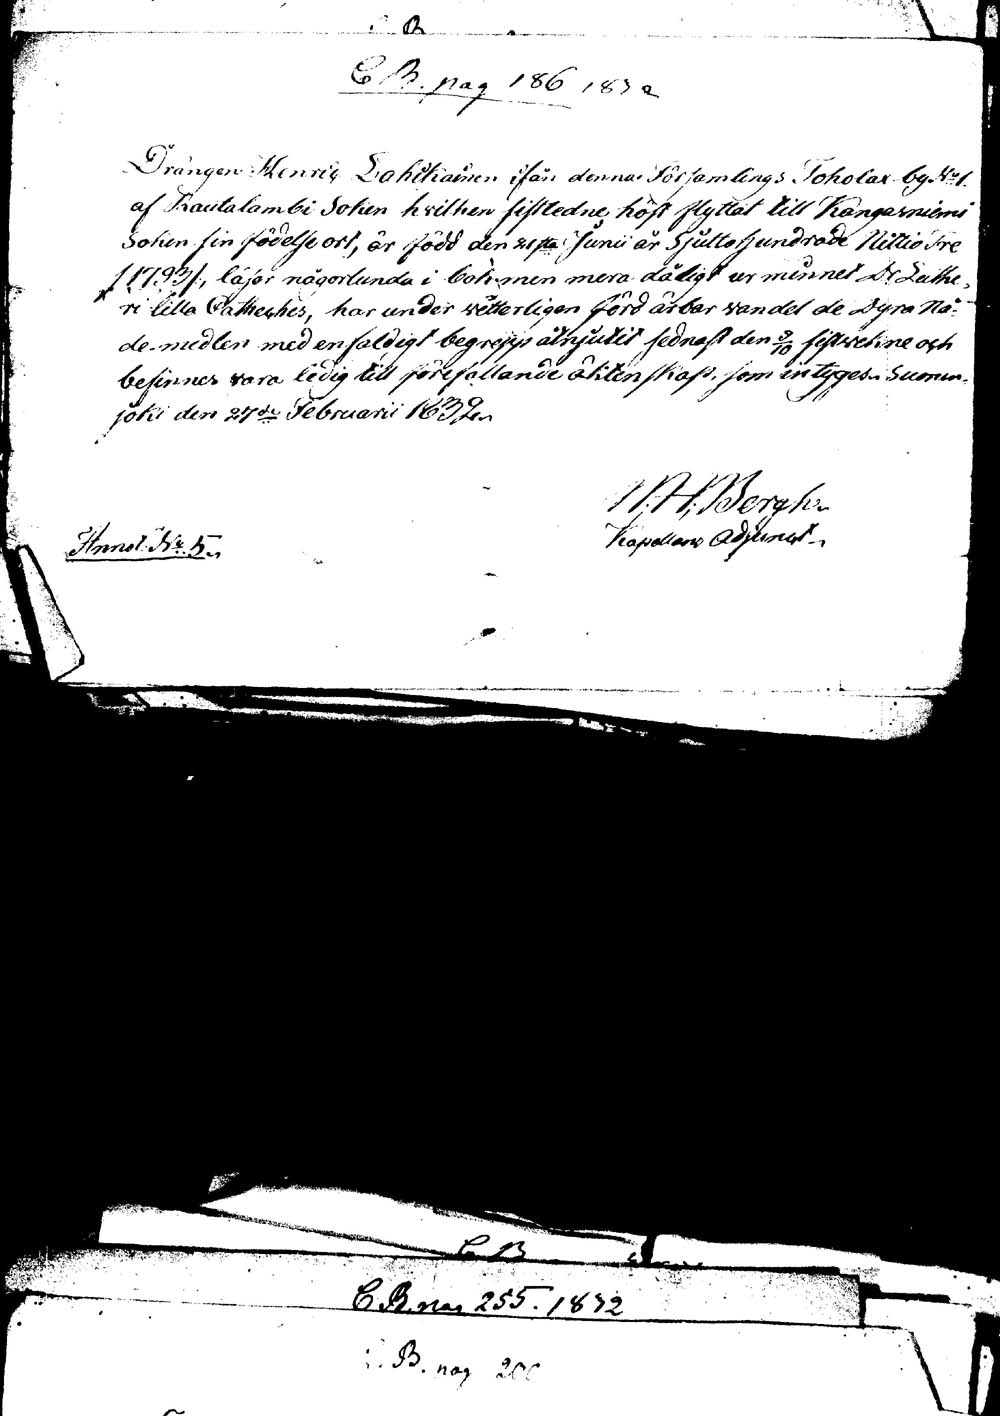 C B. pag 186 1832
Drängen Henric Lahikainen ifån denna Församlings Toholax by No 1.
af Rautalambi Soken hvilken sistledne höst flyttat till Kangasniemi
Soken sin födelse ort, är född den 21sta Junii år Sjuttohundrade Nittio Tre
/1793/, läser någorlunda i boken men mera dåligt ur minnet Dr Luthe,
ri lilla Catheches, har under wetterligen förd ärbar vandel de Dyra Nå-
de-medlen med enfaldigt begrepp åtnjutit sednast den 9/10 sistvekne och
befinnes vara ledig till förefallande äktenskap, som intygas. Suonen-
joki den 27de Februarii 1832.
Bergh
Kapellans Adjunct.
Annot. No. 5.
C B
C B. pag 255. 1832
B. pag 200